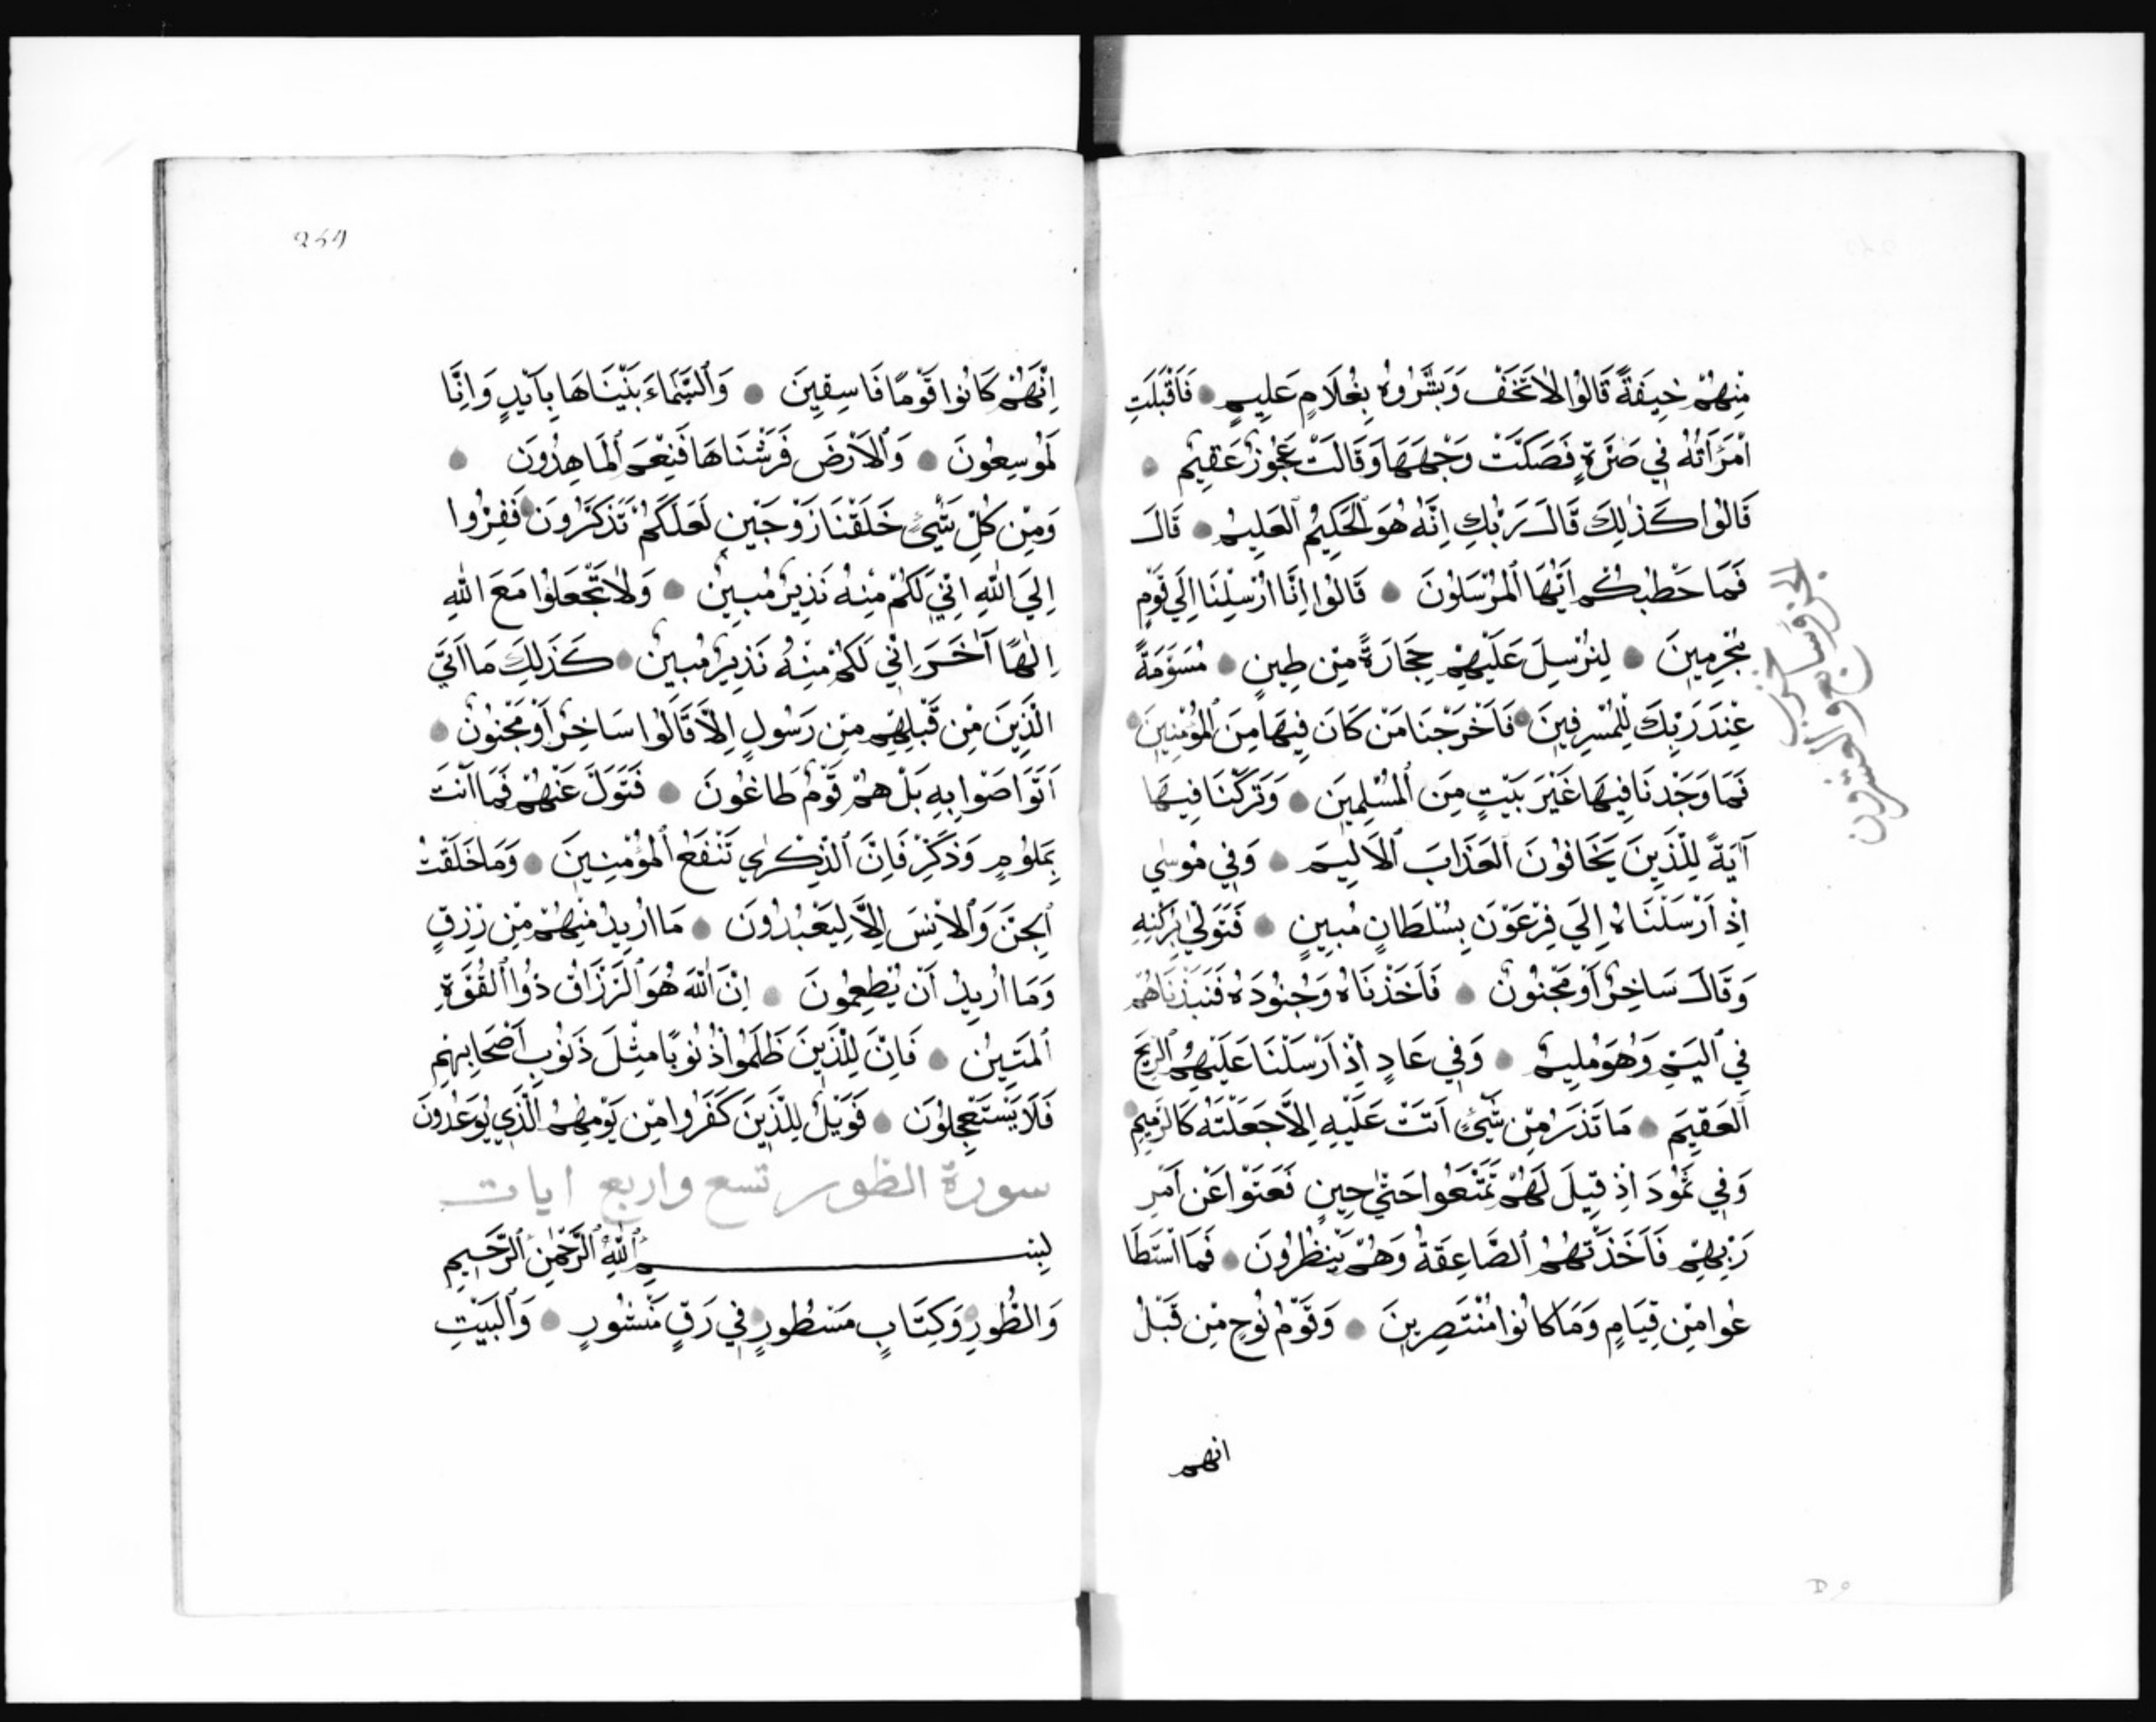 مِنْهُمْ خِيفَةً قَالُوا لَا تَخَفْ وَبَشَّرُوهُ بِغُلَامٍ عَلِيمٍ فَاَقْبَلَتِ
امْرَاَتُهُ فِي صَرَّةٍ فَصَكَّتْ وَجْهَهَا وَقَالَتْ عَجُوزٌ عَقِيمٌ
قَالُوا كَذٰلِكَ قَالَ رَبُّكِ اِنَّهُ هُوَ الْحَكِيمُ الْعَلِيمُ قَالَ
فَمَا خَطْبُكُمْ اَيُّهَا الْمُرْسَلُونَ قَالُوا اِنَّا اُرْسِلْنَا اِلَي قَوْمٍ
مُجْرِمِينَ لِنُرْسِلَ عَلَيْهِمْ حِجَارَةً مِنْ طِينٍ مُسَوَّمَةً
عِنْدَ رَبِّكَ لِلْمُسْرِفِينَ فَاَخْرَجْنَا مَنْ كَانَ فِيهَا مِنَ الْمُؤْمِنِينَ
فَمَا وَجَدْنَا فِيهَا غَيْرَ بَيْتٍ مِنَ الْمُسْلِمِينَ وَتَرَكْنَا فِيهَا
آيَةً لِلَّذِينَ يَخَافُونَ الْعَذَابَ الْاَلِيمَ وَفِي مُوسٰي
اِذْ اَرْسَلْنَاهُ اِلَي فِرْعَوْنَ بِسُلْطَانٍ مُبِينٍ فَتَوَلّٰي بِرُكْنِهِ
وَقَالَ سَاحِرٌ اَوْ مَجْنُونٌ فَاَخَذْنَاهُ وَجُنُودَهُ فَنَبَذْنَاهُمْ
فِي الْيَمِّ وَهُوَ مُلِيمٌ وَفِي عَادٍ اِذْ اَرْسَلْنَا عَلَيْهِمُ الرِّيحَ
الْعَقِيمَ مَا تَذَرُ مِنْ شَيْءٍ اَتَتْ عَلَيْهِ اِلَّا جَعَلَتْهُ كَالرَّمِيمِ
وَفِي ثَمُودَ اِذْ قِيلَ لَهُمْ تَمَتَّعُوا حَتّٰي حِينٍ فَعَتَوْا عَنْ اَمْرِ
رَبِّهِمْ فَاَخَذَتْهُمُ الصَّاعِقَةُ وَهُمْ يَنْظُرُونَ فَمَا اسْتَطَا
عُوا مِنْ قِيَامٍ وَمَا كَانُوا مُنْتَصِرِينَ وَقَوْمُ نُوحٍ مِنْ قَبْلُ
انهم
الجزؤ سابع والعشرون
D 9
254
اِنَّهُمْ كَانُوا قَوْمًا فَاسِقِينَ وَالسَّمَاءَ بَنَيْنَاهَا بِاَيْدٍ وَاِنَّا
لَمُوسِعُونَ وَالْاَرْضَ فَرَشْنَاهَا فَنِعْمَ الْمَاهِدُونَ
وَمِنْ كُلِّ شَيْءٍ خَلَقْنَا زَوْجَيْنِ لَعَلَّكُمْ تَذَكَّرُونَ فَفِرُّوا
اِلَي اللّٰهِ اِنِّي لَكُمْ مِنْهُ نَذِيرٌ مُبِينٌ وَلَا تَجْعَلُوا مَعَ اللّٰهِ
اِلٰهًا آخَرَ اِنِّي لَكُمْ مِنْهُ نَذِيرٌ مُبِينٌ كَذٰلِكَ مَا اَتَي
الَّذِينَ مِنْ قَبْلِهِمْ مِنْ رَسُولٍ اِلَّا قَالُوا سَاحِرٌ اَوْ مَجْنُونٌ
اَتَوَاصَوْا بِهِ بَلْ هُمْ قَوْمٌ طَاغُونَ فَتَوَلَّ عَنْهُمْ فَمَا اَنْتَ
بِمَلُومٍ وَذَكِّرْ فَاِنَّ الذِّكْرٰي تَنْفَعُ الْمُؤْمِنِينَ وَمَا خَلَقْتُ
الْجِنَّ وَالْاِنْسَ اِلَّا لِيَعْبُدُونَ مَا اُرِيدُ مِنْهُمْ مِنْ رِزْقٍ
وَمَا اُرِيدُ اَنْ يُطْعِمُونَ اِنَّ اللّٰهَ هُوَ الرَّزَّاقُ ذُوا الْقُوَّةِ
الْمَتِينُ فَاِنَّ لِلَّذِينَ ظَلَمُوا ذُنُوبًا مِثْلَ ذَنُوبِ اَصْحَابِهِمْ
فَلَا يَسْتَعْجِلُونَ فَوَيْلٌ لِلَّذِينَ كَفَرُوا مِنْ يَوْمِهِمُ الَّذِي يُوعَدُونَ
سورة الطور تسع واربع ايات
بِسْمِ اللّٰهِ الرَّحْمٰنِ الرَّحِيمِ
وَالطُّورِ وَكِتَابٍ مَسْطُورٍ فِي رَقٍّ مَنْشُورٍ وَالْبَيْتِ